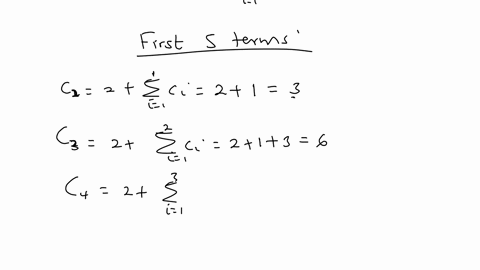 i=1
First 5 terms
C₂ = 2 + ∑_{i=1}^{1} Cᵢ = 2 + 1 = 3
C₃ = 2 + ∑_{i=1}^{2} Cᵢ = 2 + 1 + 3 = 6
C₄ = 2 + ∑_{i=1}^{3}